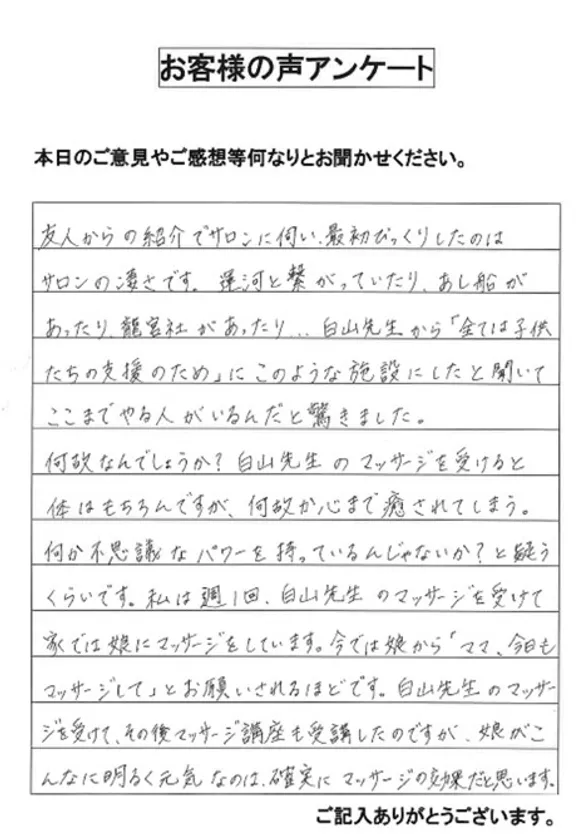 お客様の声アンケート
本日のご意見やご感想等何なりとお聞かせください。
友人からの紹介でサロンに伺い、最初びっくりしたのは
サロンの凄さです。運河と繋がっていたり、あし船が
あったり、龍宮社があったり... 白山先生から「全ては子供
たちの支援のため」にこのような施設にしたと聞いて
ここまでやる人がいるんだと驚きました。
何故なんでしょうか？白山先生のマッサージを受けると
体はもちろんですが、何故か心まで癒されてしまう。
何か不思議なパワーを持っているんじゃないか？と疑う
くらいです。私は週1回、白山先生のマッサージを受けて
家では娘にマッサージをしています。今では娘から「ママ、今日も
マッサージして」とお願いされるほどです。白山先生のマッサー
ジを受けて、その後マッサージ講座も受講したのですが、娘がこ
んなに明るく元気なのは、確実にマッサージの効果だと思います。
ご記入ありがとうございます。